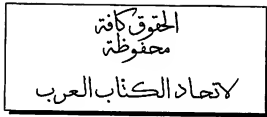 الحقوق كافة
محفوظة
لاتحاد الكتاب العرب